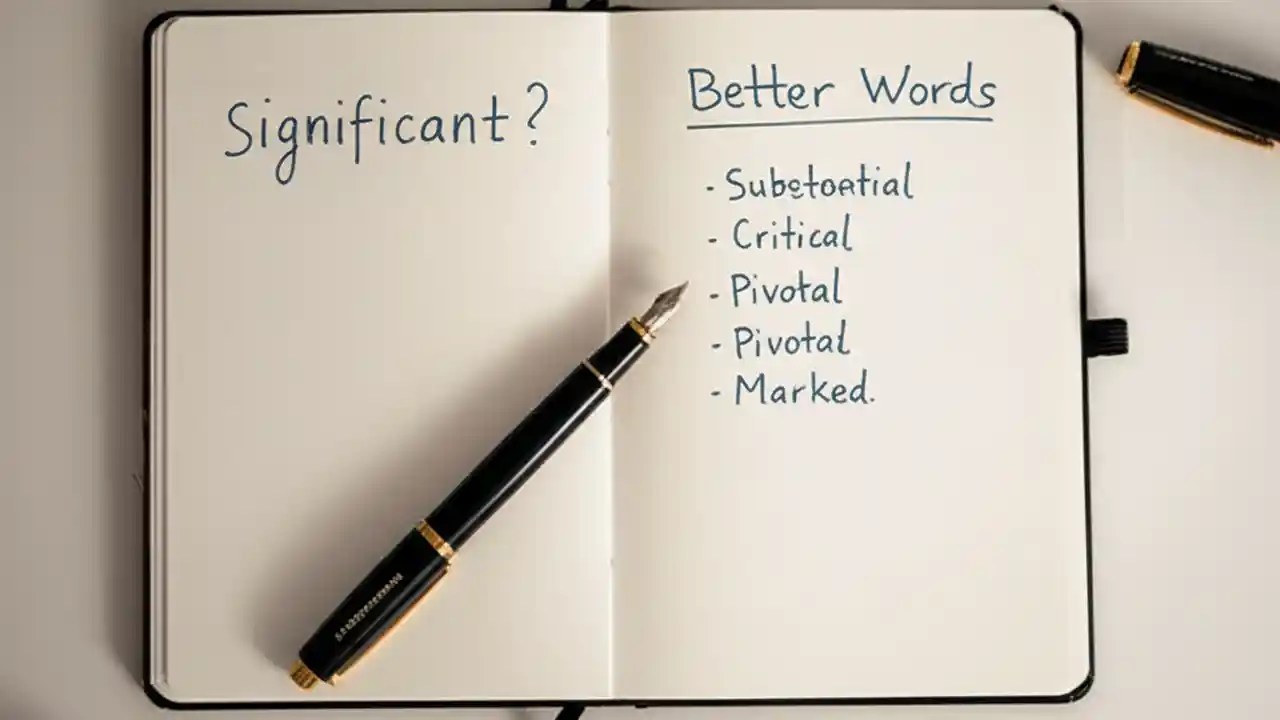 Significant?
Better Words
- Substential
- Critical
- Pivotal
- Pivotal
- Marked.